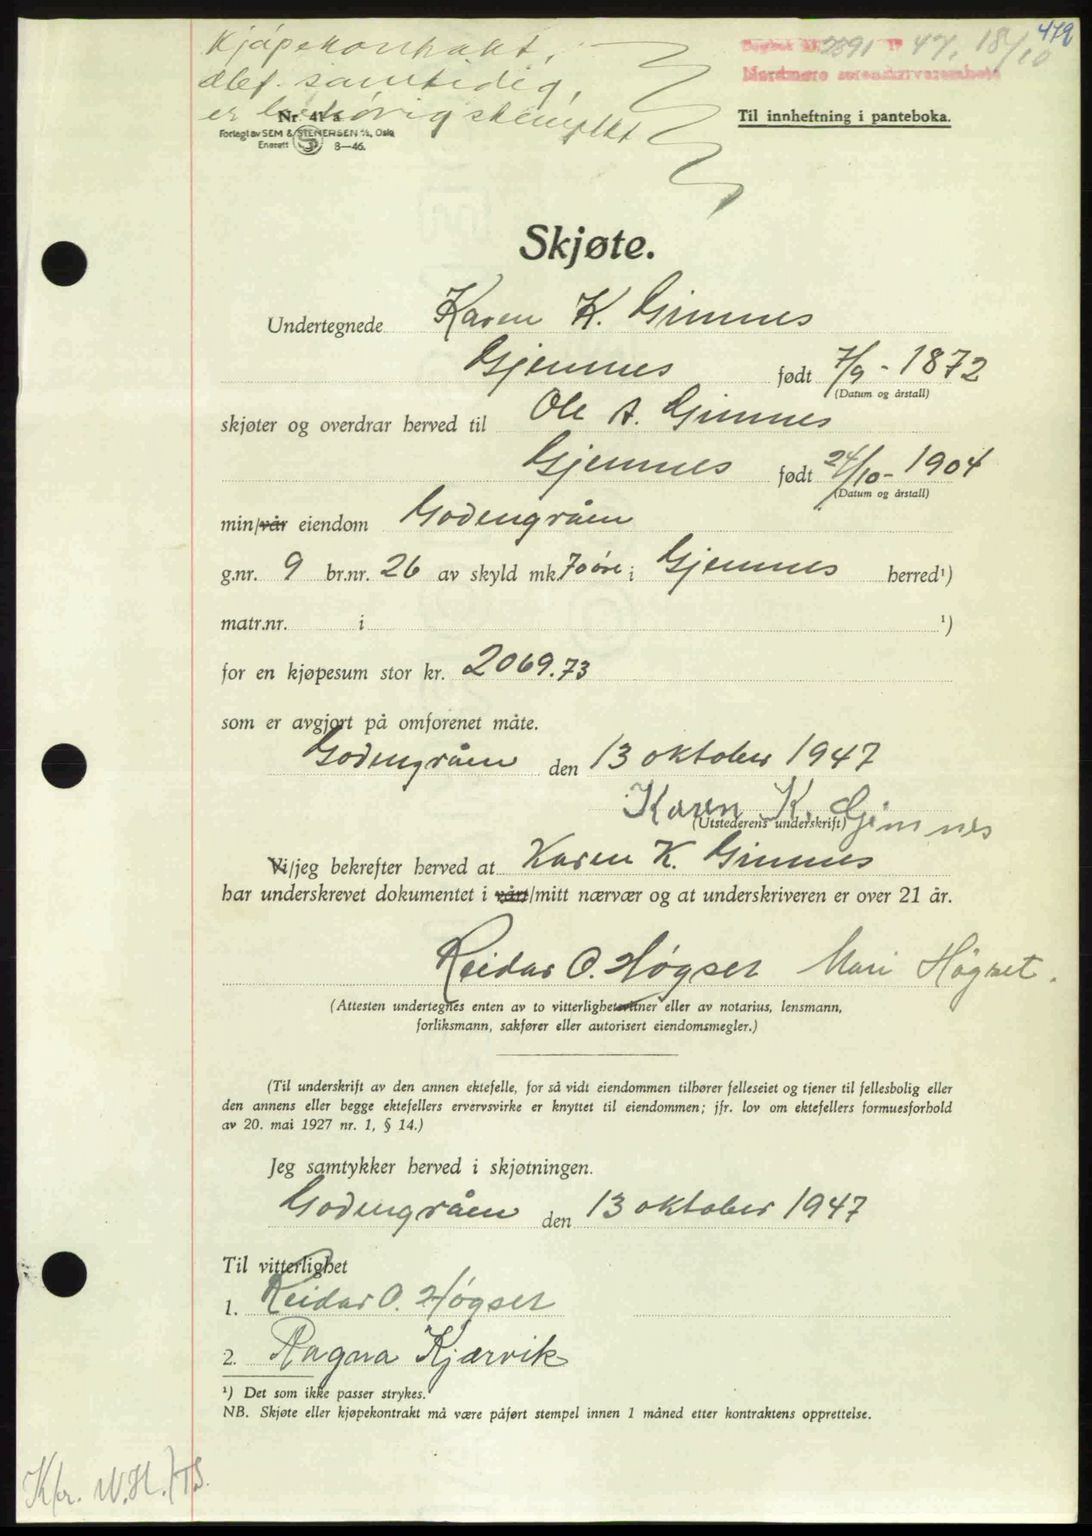 479
Kjøpekontrakt,
dat. samtidig,
er behørig stemplet
Dagbok nr. 2891 1947, 18/10
Nordmøre sorenskriverembete
Nr. 41 a
Forlegt av SEM & STENERSEN A/S, Oslo
Enerett 8—46.
Til innheftning i panteboka.
Skjøte.
Undertegnede Karen K. Gimnes
Gjemnes født 7/9 - 1872
(Datum og årstall)
skjøter og overdrar herved til Ole A. Gimnes
Gjemnes født 24/10 - 1904
(Datum og årstall)
min/vår eiendom Godengråen
g.nr. 9 br.nr. 26 av skyld mk. 70 øre i Gjemnes herred¹)
matr.nr. i ¹)
for en kjøpesum stor kr. 2069.73
som er avgjort på omforenet måte.
Godengråen den 13 oktober 1947
Karen K. Gimnes
(Utstederens underskrift)
Vi/jeg bekrefter herved at Karen K. Gimnes
har underskrevet dokumentet i vårt/mitt nærvær og at underskriveren er over 21 år.
Reidar O. Høgset Mari Høgset.
(Attesten undertegnes enten av to vitterlighetsvitner eller av notarius, lensmann,
forliksmann, sakfører eller autorisert eiendomsmegler.)
(Til underskrift av den annen ektefelle, for så vidt eiendommen tilhører felleseiet og tjener til fellesbolig eller
den annens eller begge ektefellers ervervsvirke er knyttet til eiendommen; jfr. lov om ektefellers formuesforhold
av 20. mai 1927 nr. 1, § 14.)
Jeg samtykker herved i skjøtningen.
Godengråen den 13 oktober 1947
Til vitterlighet
1. Reidar O. Høgset
2. Ragna Kjærvik
¹) Det som ikke passer strykes.
NB. Skjøte eller kjøpekontrakt må være påført stempel innen 1 måned etter kontraktens opprettelse.
Kfr. W.H./TS.